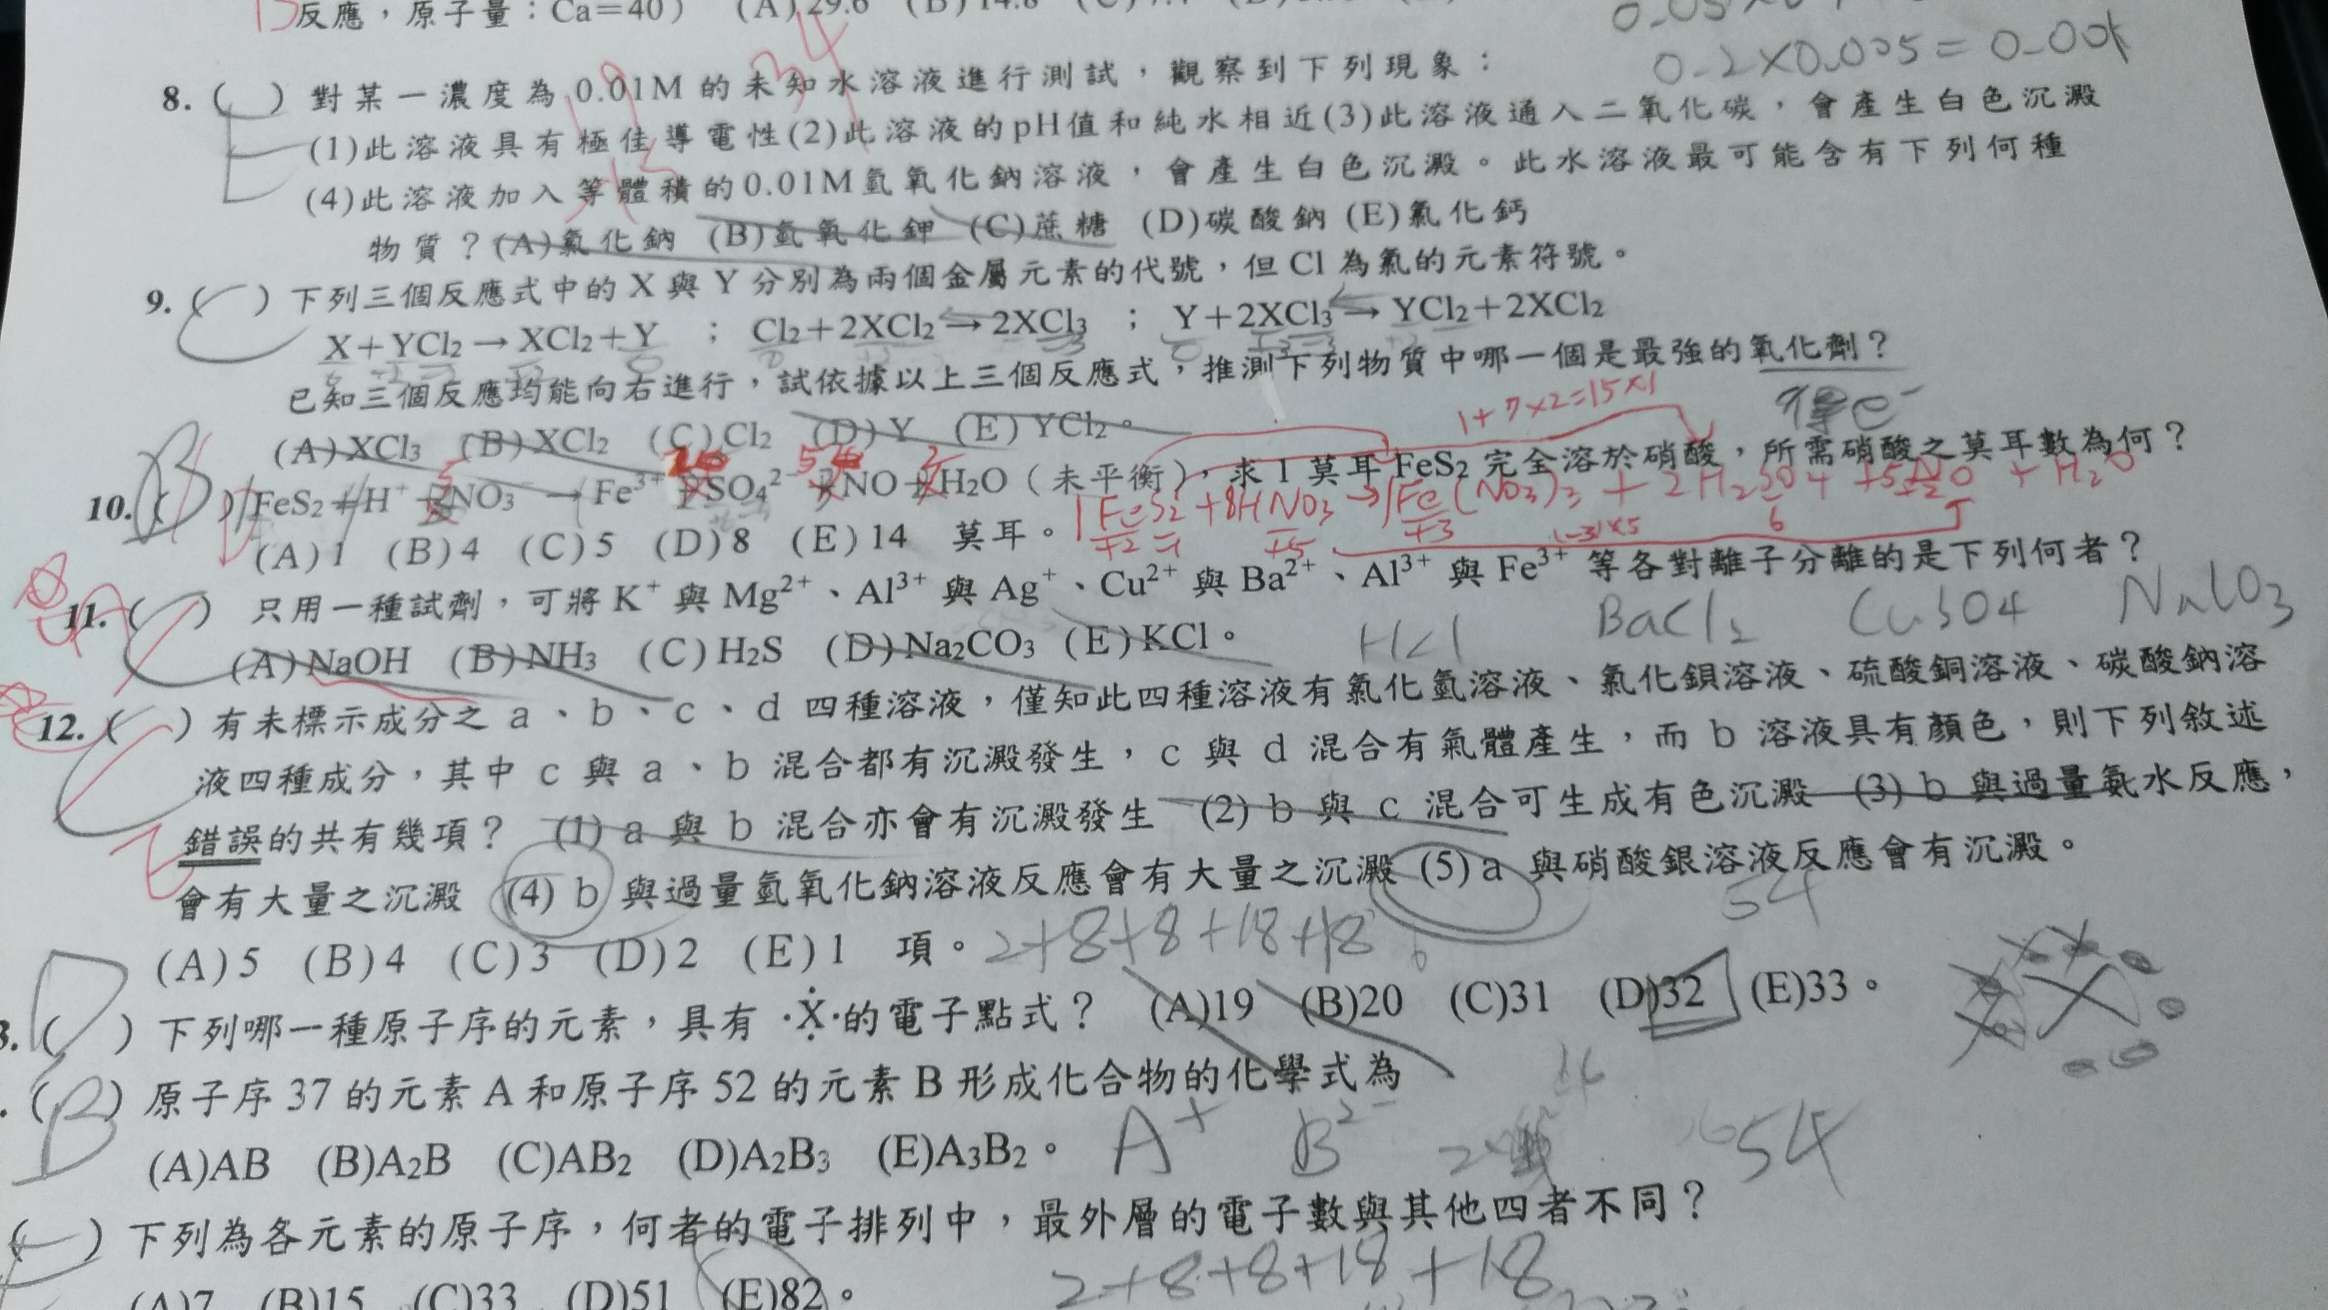 反應，原子量：Ca=40） (A)29.6
0.2×0.005=0.001
8.( ) 對某一濃度為0.01M的未知水溶液進行測試，觀察到下列現象：
(1)此溶液具有極佳導電性(2)此溶液的pH值和純水相近(3)此溶液通入二氧化碳，會產生白色沉澱
(4)此溶液加入等體積的0.01M氫氧化鈉溶液，會產生白色沉澱。此水溶液最可能含有下列何種
物質？(A)氯化鈉 (B)氫氧化鉀 (C)蔗糖 (D)碳酸鈉 (E)氯化鈣
9.( C ) 下列三個反應式中的 X 與 Y 分別為兩個金屬元素的代號，但 Cl 為氯的元素符號。
X+YCl₂→XCl₂+Y ； Cl₂+2XCl₂→2XCl₃ ； Y+2XCl₃→YCl₂+2XCl₂
已知三個反應均能向右進行，試依據以上三個反應式，推測下列物質中哪一個是最強的氧化劑？
得e⁻
(A)XCl₃ (B)XCl₂ (C)Cl₂ (D)Y (E)YCl₂。
1+7×2=15×1
10.( B ) FeS₂+H⁺+NO₃⁻→Fe³⁺+SO₄²⁻+NO+H₂O（未平衡），求 1 莫耳 FeS₂ 完全溶於硝酸，所需硝酸之莫耳數為何？
1FeS₂+8HNO₃→1Fe(NO₃)₃+2H₂SO₄+5NO+H₂O
(-3)×5
(A)1 (B)4 (C)5 (D)8 (E)14 莫耳。
11.( C ) 只用一種試劑，可將 K⁺ 與 Mg²⁺、Al³⁺ 與 Ag⁺、Cu²⁺ 與 Ba²⁺、Al³⁺ 與 Fe³⁺ 等各對離子分離的是下列何者？
(A)NaOH (B)NH₃ (C)H₂S (D)Na₂CO₃ (E)KCl。
HCl BaCl₂ CuSO4 NaCO₃
12.( C ) 有未標示成分之 a、b、c、d 四種溶液，僅知此四種溶液有氯化氫溶液、氯化鋇溶液、硫酸銅溶液、碳酸鈉溶
液四種成分，其中 c 與 a、b 混合都有沉澱發生，c 與 d 混合有氣體產生，而 b 溶液具有顏色，則下列敘述
錯誤的共有幾項？ (1) a 與 b 混合亦會有沉澱發生 (2) b 與 c 混合可生成有色沉澱 (3) b 與過量氨水反應，
會有大量之沉澱 (4) b 與過量氫氧化鈉溶液反應會有大量之沉澱 (5) a 與硝酸銀溶液反應會有沉澱。
54
(A)5 (B)4 (C)3 (D)2 (E)1 項。
2+8+8+18+18
3.( D ) 下列哪一種原子序的元素，具有 ·Ẋ̣· 的電子點式？ (A)19 (B)20 (C)31 (D)32 (E)33。
.( B ) 原子序 37 的元素 A 和原子序 52 的元素 B 形成化合物的化學式為
(A)AB (B)A₂B (C)AB₂ (D)A₂B₃ (E)A₃B₂。
A⁺ B²⁻ 54
( ) 下列為各元素的原子序，何者的電子排列中，最外層的電子數與其他四者不同？
(A)7 (B)15 (C)33 (D)51 (E)82。
2+8+8+18+18